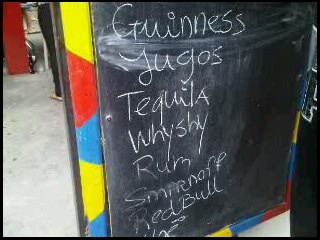 Guinness
Jugos
Tequila
Whyshy
Rum
Smirnoff
Red Bull